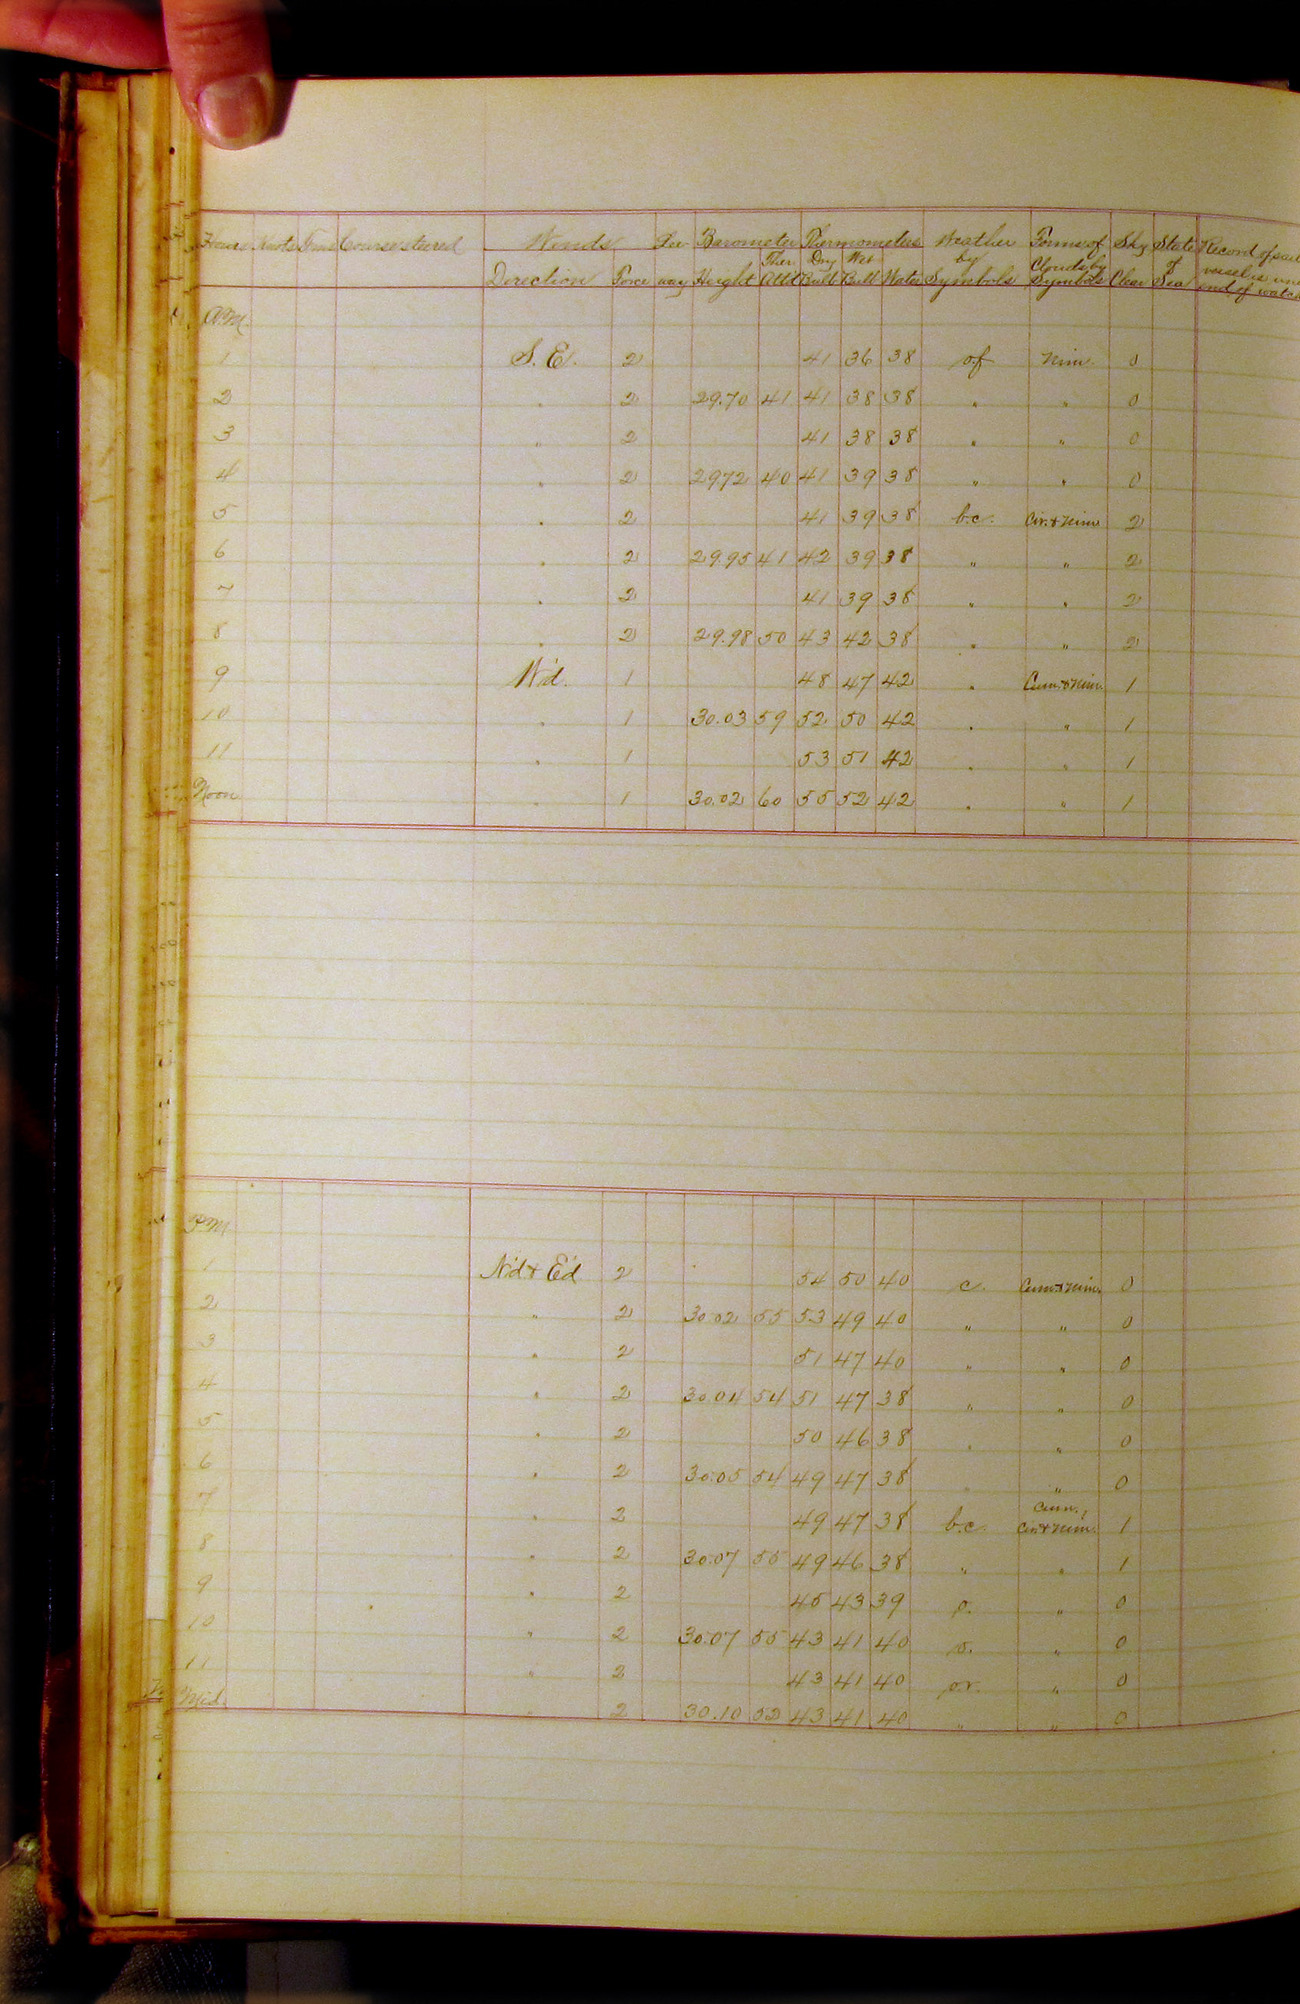 Hours Knots Tens Course steered Winds Lee Barometer Thermometers Weather Forms of Sky State Record of sail
Direction Force way Height Ther. Att'd Dry Bulb Wet Bulb Water by Symbols Clouds by Symbols Clear of Sea vessel is un
end of watch
A.M.
1 S. E. 2 41 36 38 o.f Nim. 0
2 " 2 29.70 41 41 38 38 " " 0
3 " 2 41 38 38 " " 0
4 " 2 29.72 40 41 39 38 " " 0
5 " 2 41 39 38 b.c. Cir. & Nim 2
6 " 2 29.95 41 42 39 38 " " 2
7 " 2 41 39 38 " " 2
8 " 2 29.98 50 43 42 38 " " 2
9 W'd. 1 48 47 42 " Cum. & Nim. 1
10 " 1 30.03 59 52 50 42 " " 1
11 " 1 53 51 42 " " 1
Noon " 1 30.02 60 55 52 42 " " 1
P.M.
1 N'd & E'd 2 54 50 40 c. Cum. & Nim. 0
2 " 2 30.02 55 53 49 40 " " 0
3 " 2 51 47 40 " " 0
4 " 2 30.04 54 51 47 38 " " 0
5 " 2 50 46 38 " " 0
6 " 2 30.05 54 49 47 38 " " 0
7 " 2 49 47 38 b.c. Cum., Cir. & Nim. 1
8 " 2 30.07 55 49 46 38 " " 1
9 " 2 45 43 39 o. " 0
10 " 2 30.07 55 43 41 40 o. " 0
11 " 2 43 41 40 o.r. " 0
Mid. " 2 30.10 52 43 41 40 " " 0